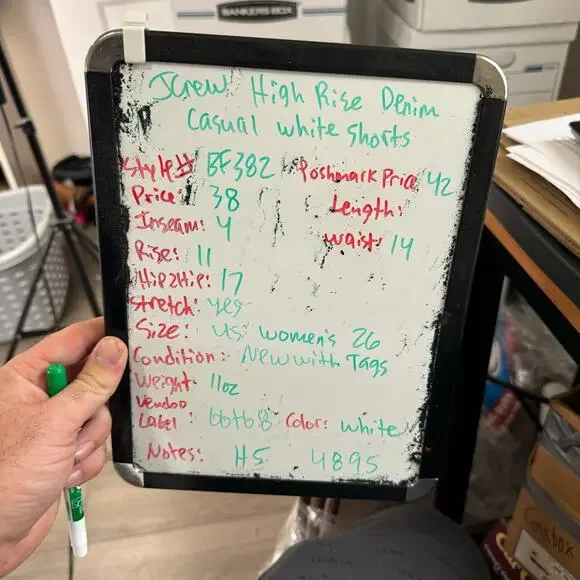 BANKERS BOX
JCrew High Rise Denim
Casual white shorts
Style# BF382 Poshmark Price 42
Price: 38
Length:
Inseam: 4
waist: 14
Rise: 11
Hip2Hip: 17
Stretch: yes
Size: US women's 26
Condition: New with Tags
Weight 11oz
Vendoo
Label: bbt68 Color: white
Notes: H5 4895